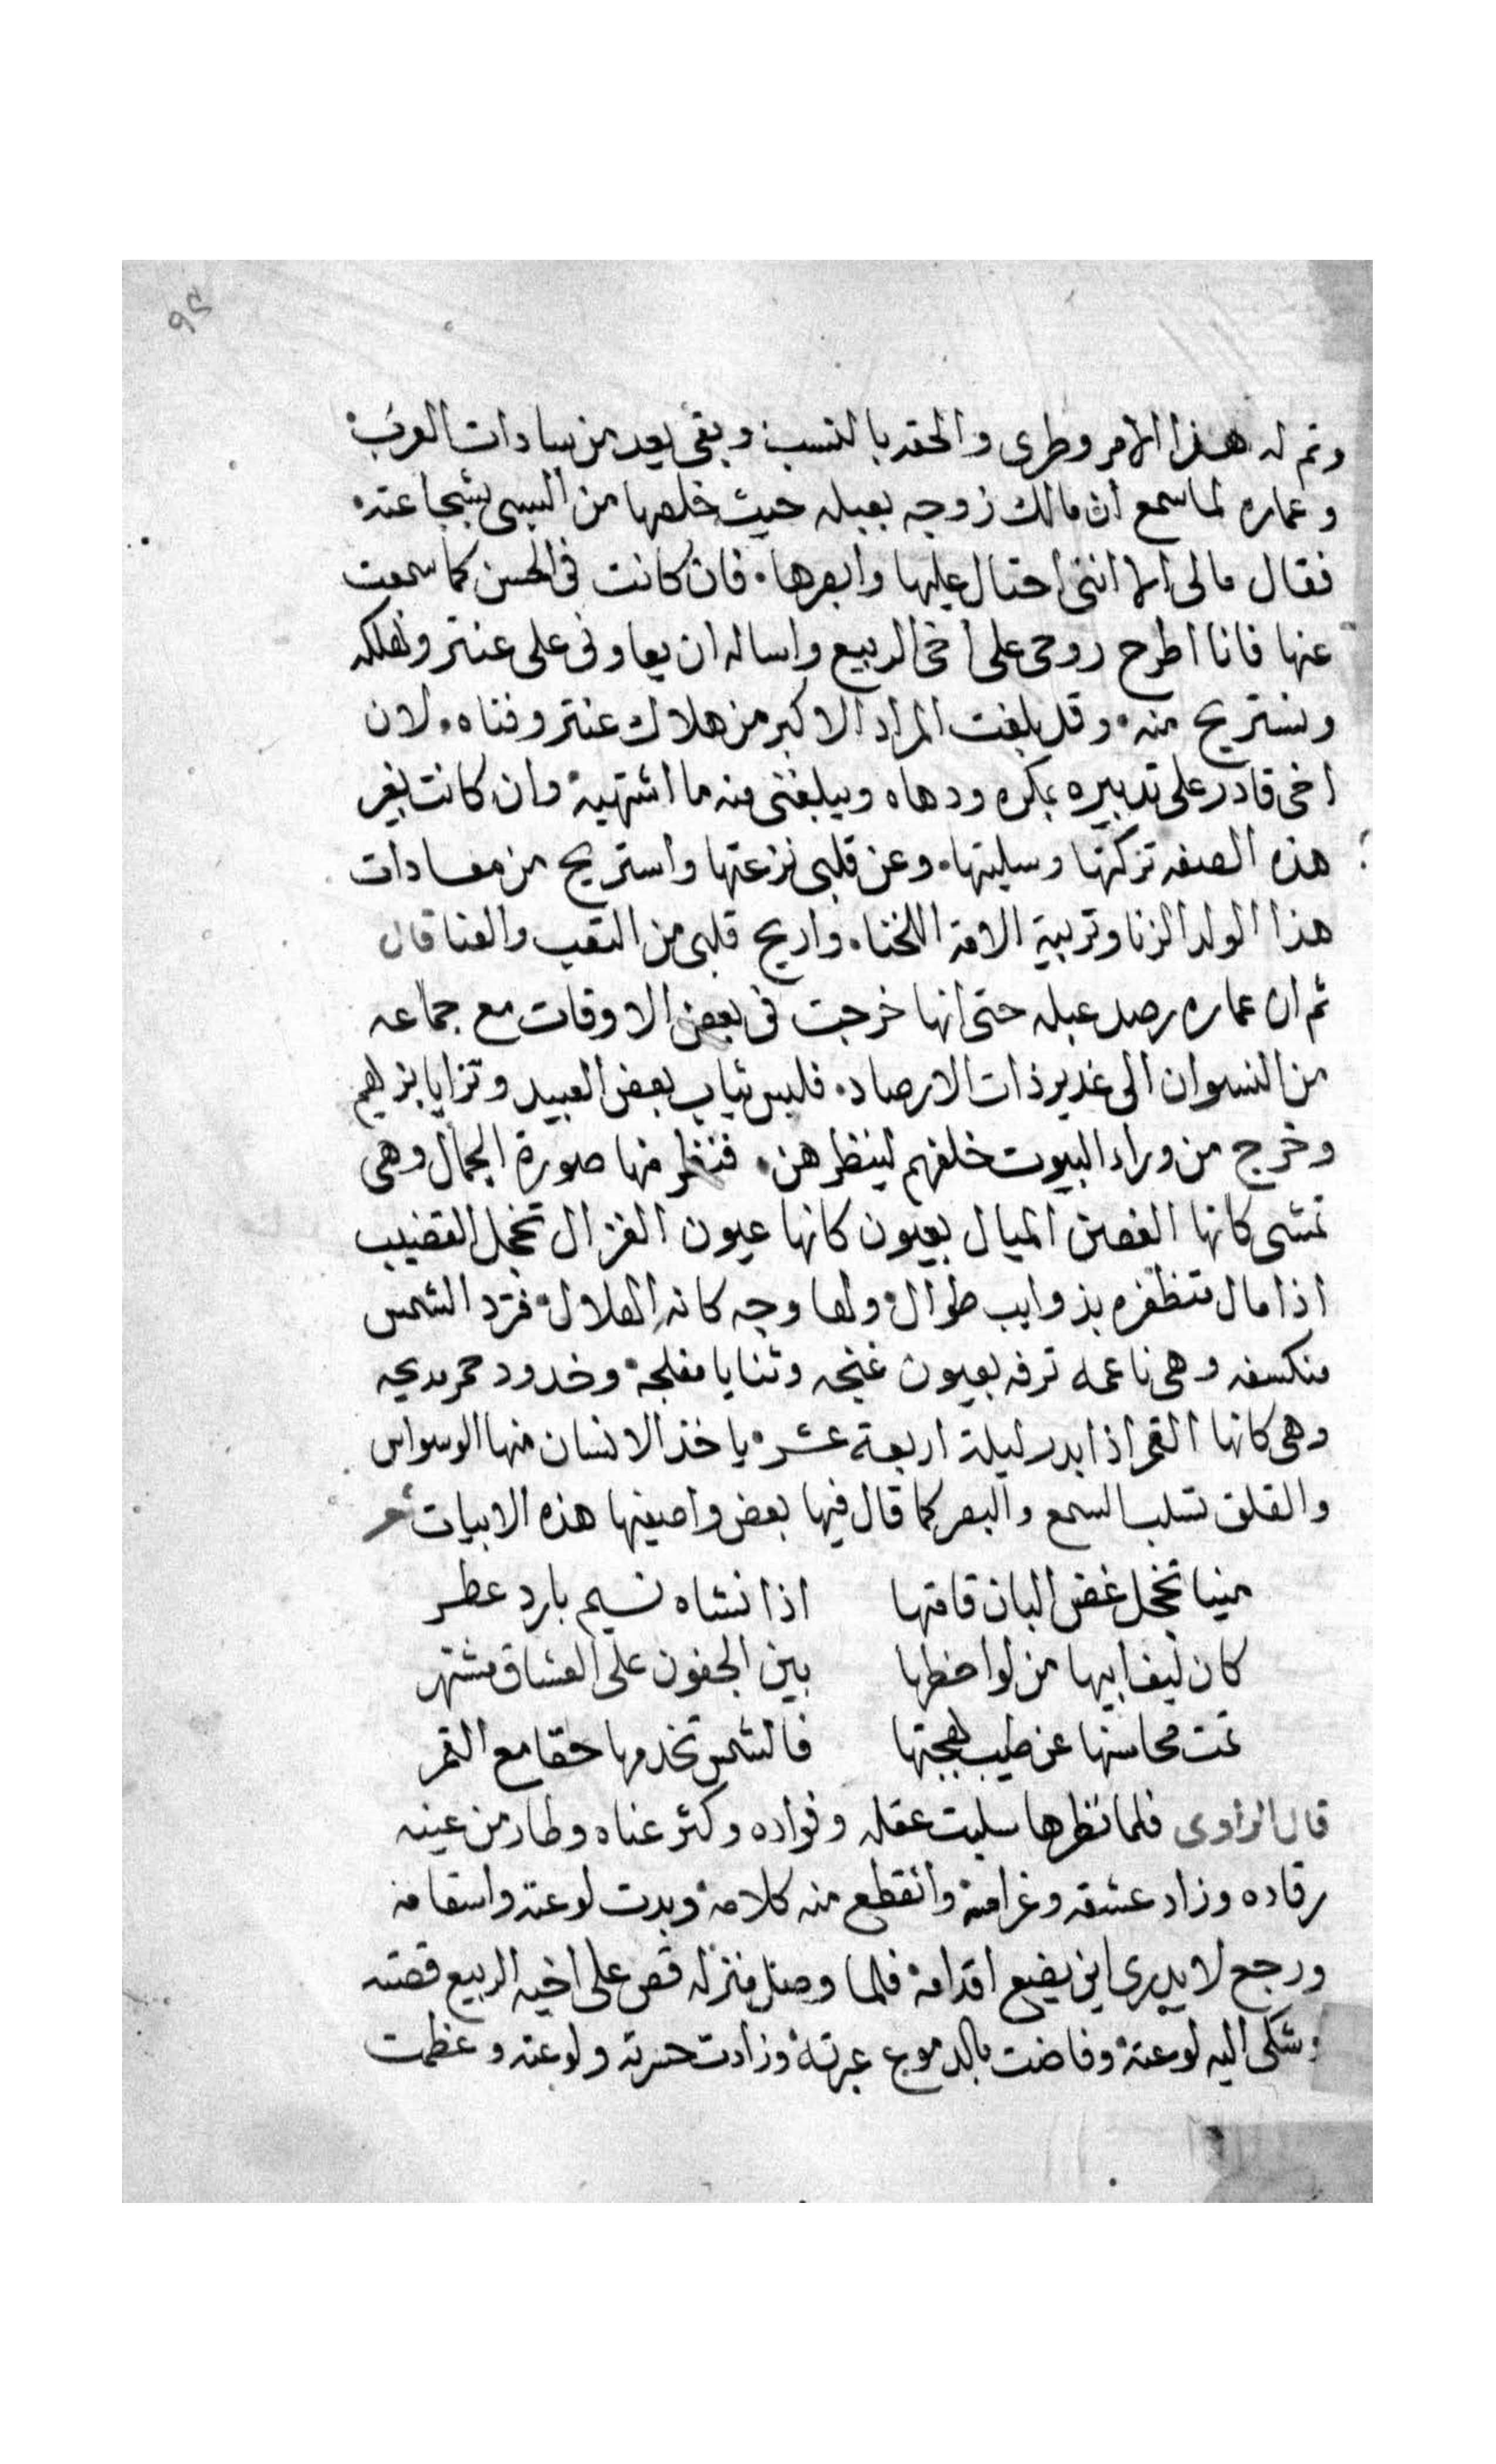 ٩٥
وتم له هذا الامر وطرى والحقه بالنسب وبقى يعد من سادات العرب
وعماره لما سمع ان مالك زوجه بعبله حيث خلصها من السبى بشجاعته
فقال مالى الا اننى احتال عليها وابصرها فان كانت فى الحسن كما سمعت
عنها فانا اطرح روحى على اخى الربيع واساله ان يعاونى على عنتر ونهلكه
ونستريح منه وقد بلغت المراد الاكبر من هلاك عنتر وفناه لان
اخى قادر على تدبيره بمكره ودهاه ويبلغنى منه ما اشتهية وان كانت بغير
هذه الصفه تركتها وسليتها وعن قلبى نزعتها واستريح من معادات
هذا الولد الزنا وتربية الامه اللخناه واريح قلبى من التعب والعنا قال
ثم ان عماره رصد عبله حتى انها خرجت فى بعض الاوقات مع جماعه
من النسوان الى غدير ذات الارصاد فلبس ثياب بعض العبيد وتزايا بزيهم
وخرج من وراء البيوت خلفهم لينظرهن فنظر منها صورة الجمال وهى
تمشى كانها الغصن الميال بعيون كانها عيون الغزال تخجل القضيب
اذا مال متظفره بذوايب طوال ولها وجه كانه الهلال فترد الشمس
منكسفه وهى ناعمه ترفه بعيون غنجه وثنايا مفلجة وخدود حمر مديحه
وهى كانها القمر اذا ابدر ليلة اربعة عشر ياخذ الانسان منها الوسواس
والقلق تسلب السمع والبصر كما قال فيها بعض واصفيها هذه الابيات شعر
ميتا تخجل غض البان قامتها اذا نشاه نسيم بارد عطر
كان ليف ابيها من لواحظها بين الجفون على العشاق مشتهر
تمت محاسنها عن طيب لهجتها فالشمس تخدمها حقا مع القمر
قال الراوى فلما نظرها سلبت عقله وفواده وكثر عناه وطار من عينه
رقاده وزاد عشقه وغرامة وانقطع منه كلامة وبدت لوعته واسقامه
ورجع لا يدرى اين يضع اقدامة فلما وصل منزله قص على اخيه الربيع قصته
وشكى اليه لوعتة وفاضت بالدموع عبرتة وزادت حسرته ولوعته وعظمت